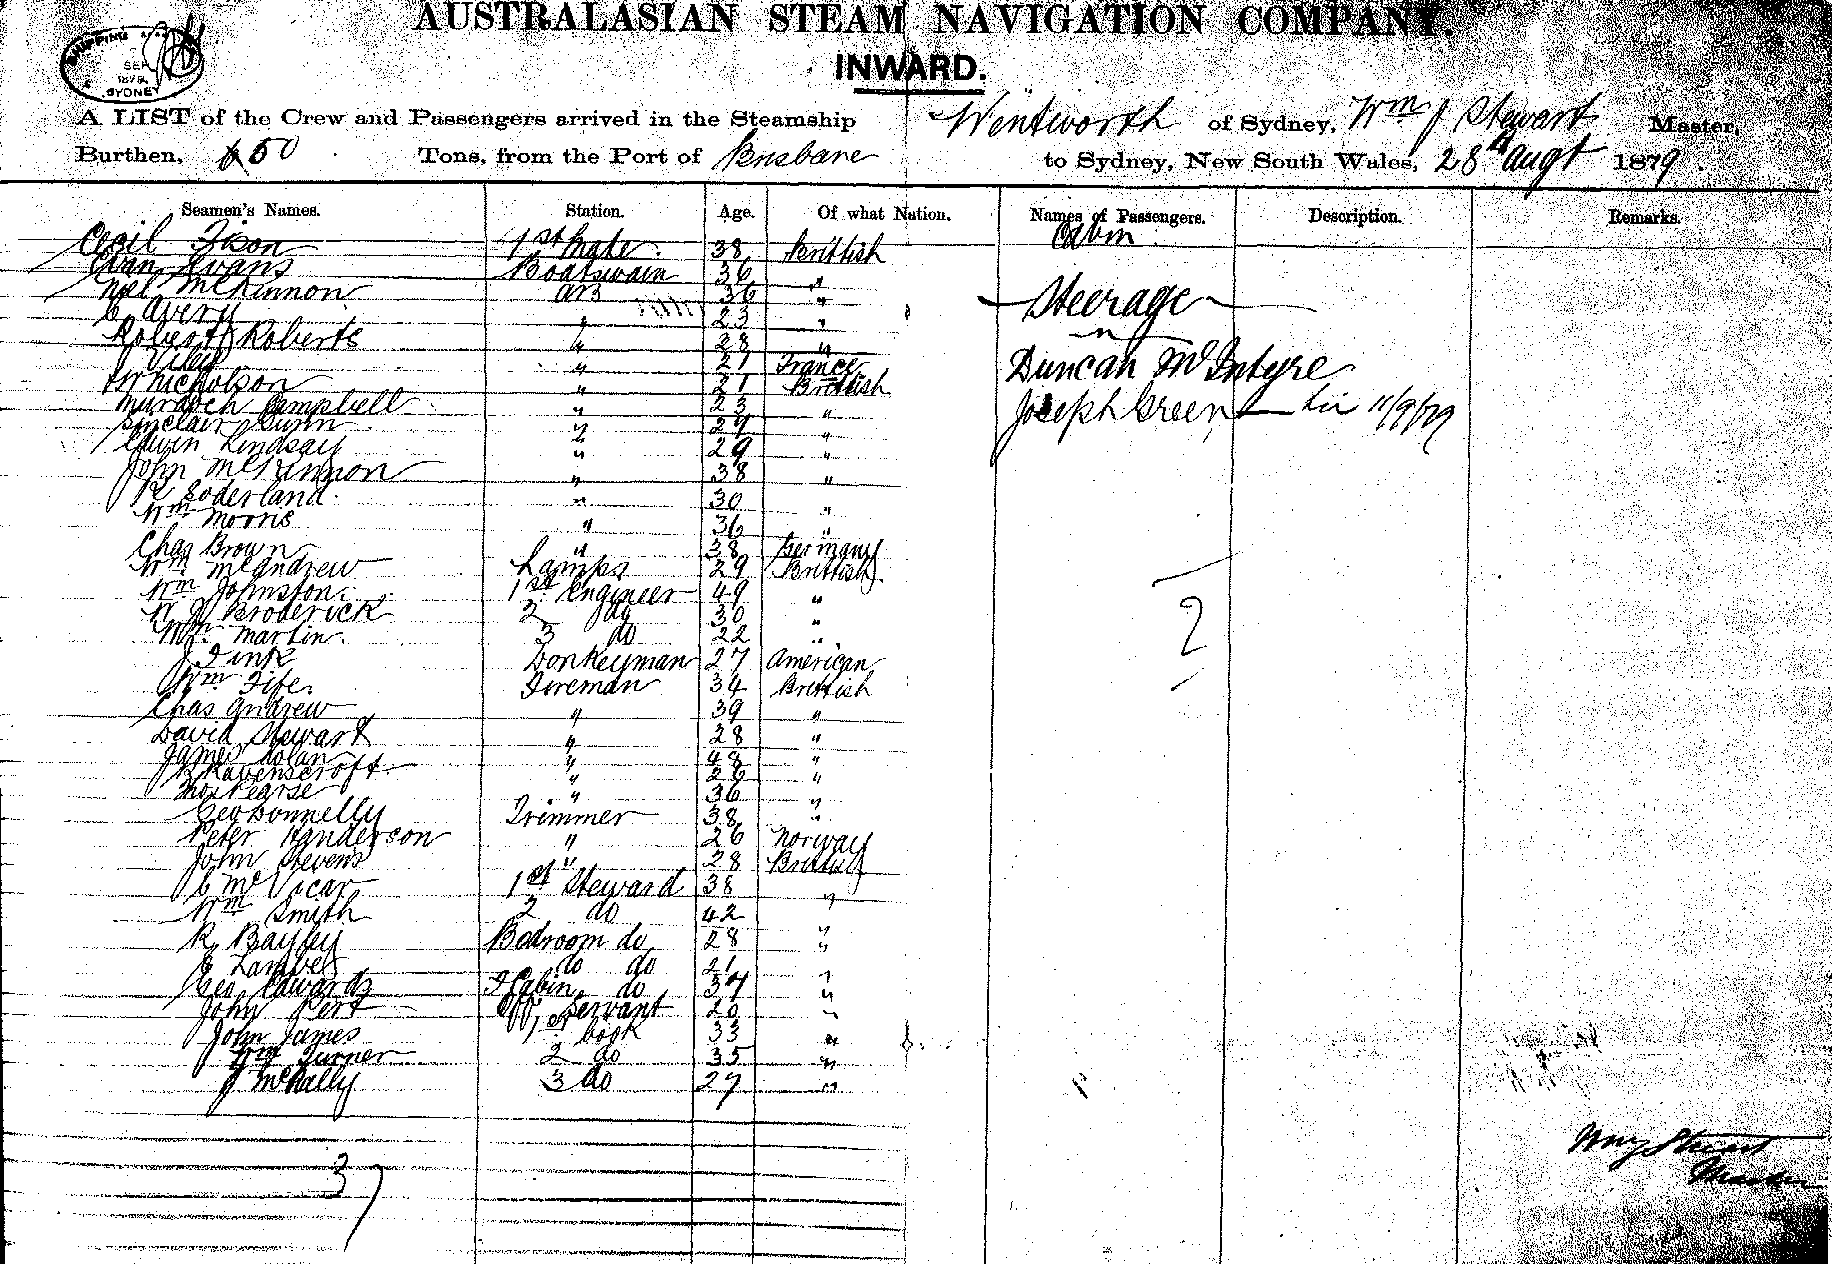 AUSTRALASIAN STEAM NAVIGATION COMPANY.
INWARD.
SHIPPING
SEP
1879
SYDNEY
A LIST of the Crew and Passengers arrived in the Steamship Wentworth of Sydney, Wm J Stewart Master,
Burthen, 650 Tons, from the Port of Brisbane to Sydney, New South Wales, 28th Augt 1879
Seamen's Names. Station. Age. Of what Nation. Names of Passengers. Description. Remarks.
Cecil 1st Mate 38 Brittish Cabin
Evan Evans Boatswain 36 "
Neil McKinnon AB 36 " Steerage
C Avery " 23 "
Robert Roberts " 28 "
J " 21 France Duncan McIntyre
Nicholson " 21 Brittish
Murdoch Campbell " 23 " Joseph Green 11/9/79
Sinclair Gunn " 27 "
Edwin Lindsay " 29 "
John McKinnon " 38 "
R Soderland " 30 "
Wm Morris " 36 "
Chas Brown " 38 Germany
Wm McAndrew Lamps 29 Brittish
Wm Johnston 1st Engineer 49 "
W J Broderick 2 do 30 "
Wm Martin 3 do 22 "
J Fink Donkeyman 27 American
Wm Fife Fireman 34 Brittish
Chas Andrew " 39 "
David Stewart " 28 "
James Dolan " 48 "
R Ravenscroft " 26 "
Thos Pearse " 36 "
Geo Donnelly Trimmer 38 "
Peter Handerson " 26 Norway
John Stevens " 28 Brittish
C McVicar 1st Steward 38 "
Wm Smith 2 do 42
R Bayley Bedroom do 28 "
E do do 21 "
Geo Edwards F Cabin do 37 "
John Servant 20 "
John James 1st Cook 33 "
Wm Turner 2 do 35 "
J McNally 3 do 27 "
2
37
Wm J Stewart
Master